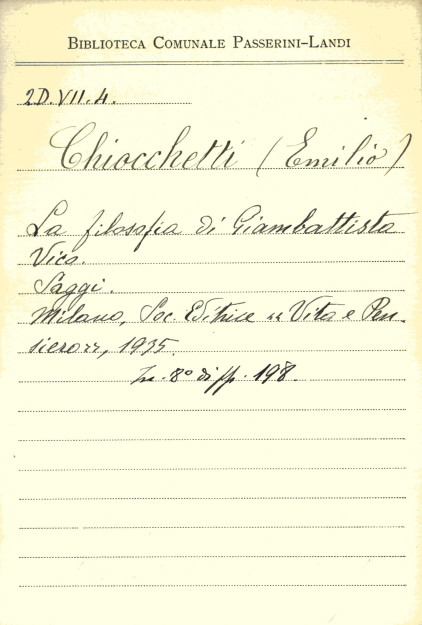 BIBLIOTECA COMUNALE PASSERINI-LANDI
2D.VII.4.
Chiocchetti (Emilio)
La filosofia di Giambattista
Vico.
Saggi.
Milano, Soc. Editrice "Vita e Pen-
siero", 1935.
In 8° di pp. 198.